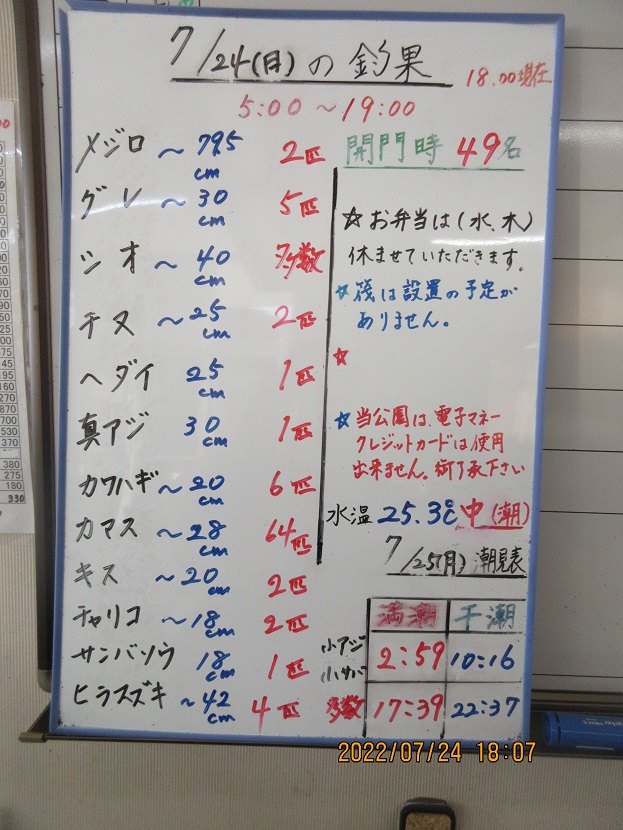 7/24(日)の釣果
18.00現在
5:00 ～19:00
メジロ ～79.5cm 2匹
グレ ～30cm 5匹
シオ ～40cm 多数
チヌ ～25cm 2匹
ヘダイ 25cm 1匹
真アジ 30cm 1匹
カワハギ ～20cm 6匹
カマス ～28cm 64匹
キス ～20cm 2匹
チャリコ ～18cm 2匹
サンバソウ 18cm 1匹
ヒラスズキ ～42cm 4匹
小アジ
小サバ
多数
開門時 49名
☆お弁当は(水、木)
休ませていただきます。
☆筏は設置の予定が
ありません。
☆
☆当公園は、電子マネー
クレジットカードは使用
出来ません。御了承下さい
水温 25.3℃ 中(潮)
7/25(月)潮見表
満潮 干潮
2:59 10:16
17:39 22:37
2022/07/24 18:07
380
275
180
330